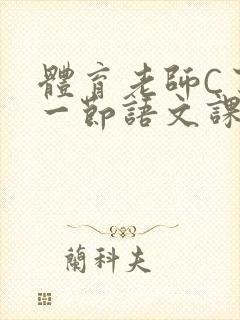 體育老師C
一節語文課
蘭科夫